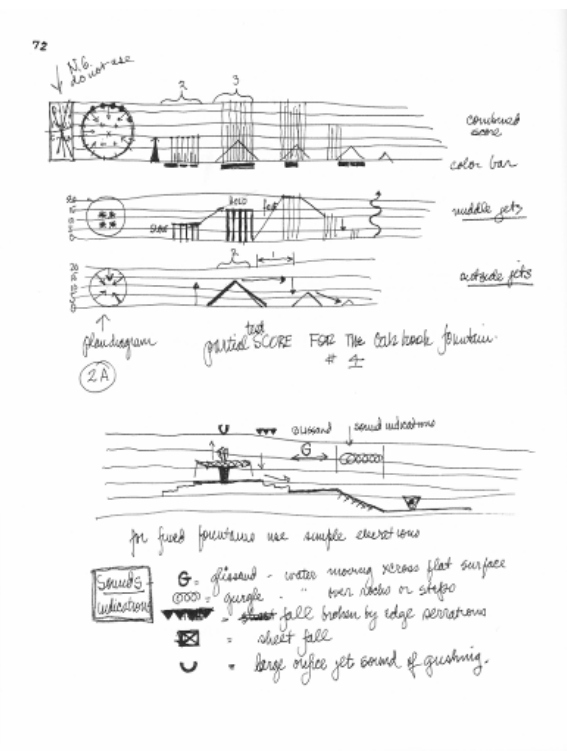 72
N.G.
do not use
2
3
combined
score
color bar
20
15
10
5
0
SLOW
HOLD
fast
middle jets
20
15
10
5
0
2
1
outside jets
plan diagram
test
partial SCORE FOR THE Oak brook fountain.
# 4
2A
U
GLISSAND
sound indications
G
for fixed fountains use simple elevations
Sounds
indications
G = glissand - water moving across flat surface
= gurgle - " over rocks or steps
= fall broken by edge serrations
= sheet fall
= large orifice jet sound of gushing.